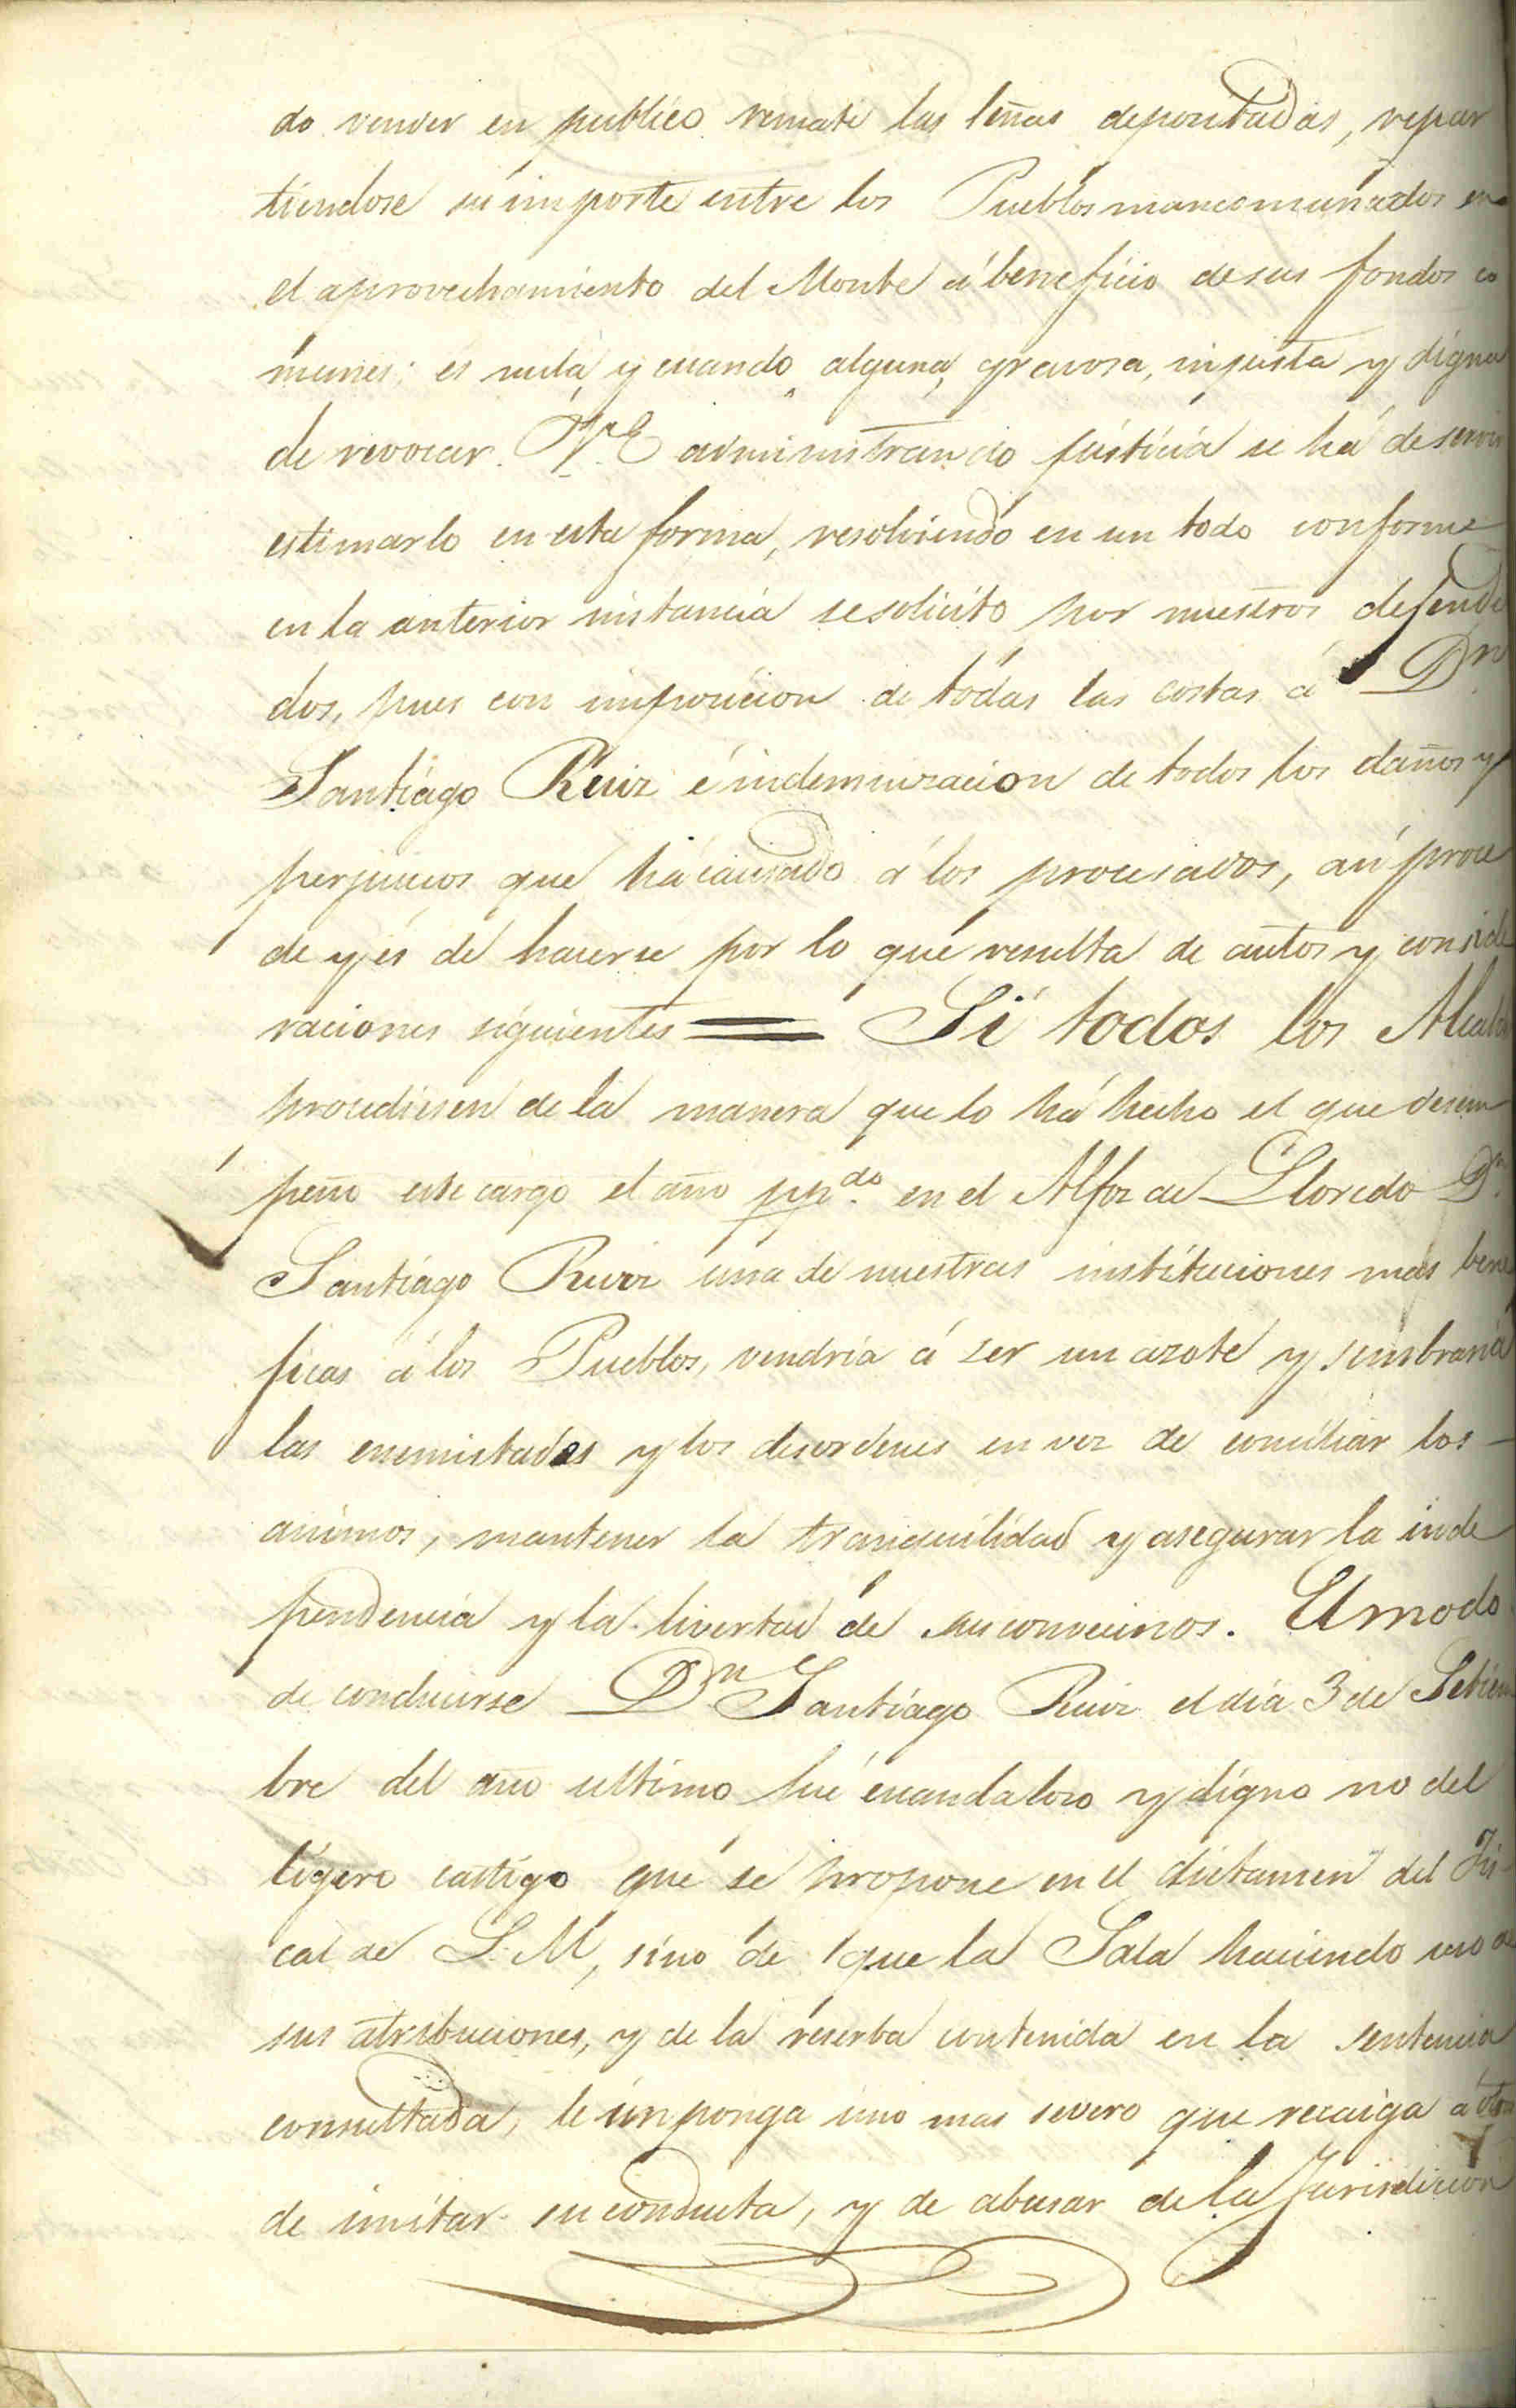 do vender en publico remate las leñas depositadas, repar
tiendose su importe entre los Pueblos mancomunados en
el aprovechamiento del Monte á beneficio de sus fondos co
munes; es nula, y cuando alguna, gravosa, injusta y digna
de revocar. V.E. administrando justicia se há de servir
estimarlo en esta forma, resolviendo en un todo conforme
en la anterior instancia se solicito por nuestros defendi
dos, pues con imposicion de todas las costas á Dn
Santiágo Ruiz é indemnizacion de todos los daños y
perjuicios que há causado á los procesados, asi proce
de y es de hacerse por lo que resulta de autos y conside
raciones siguientes = Si todos los Alcaldes
procediesen de la manera que lo há hecho el que desem
peño este cargo el año pp.do en el Alfoz de Lloredo Dn.
Santiágo Ruiz una de nuestras instituciones mas bene
ficas á los Pueblos, vendría á ser un azote y sembraria
las enemistades y los desordenes en vez de conciliar los
animos, mantener la tranquilidad y asegurar la inde
pendencia y la livertad de sus convecinos. El modo
de conducirse Dn. Santiágo Ruiz el día 3 de Setiem
bre del año ultimo fué escandaloso y digno no del
ligero castigo que se propone en el dictamen del Fis
cal de S. M, sino de que la Sala haciendo uso de
sus atribuciones, y de la reserba contenida en la sentencia
consultada, le imponga uno mas severo que recaiga á otros
de imitar su conducta, y de abusar de la Jurisdicion